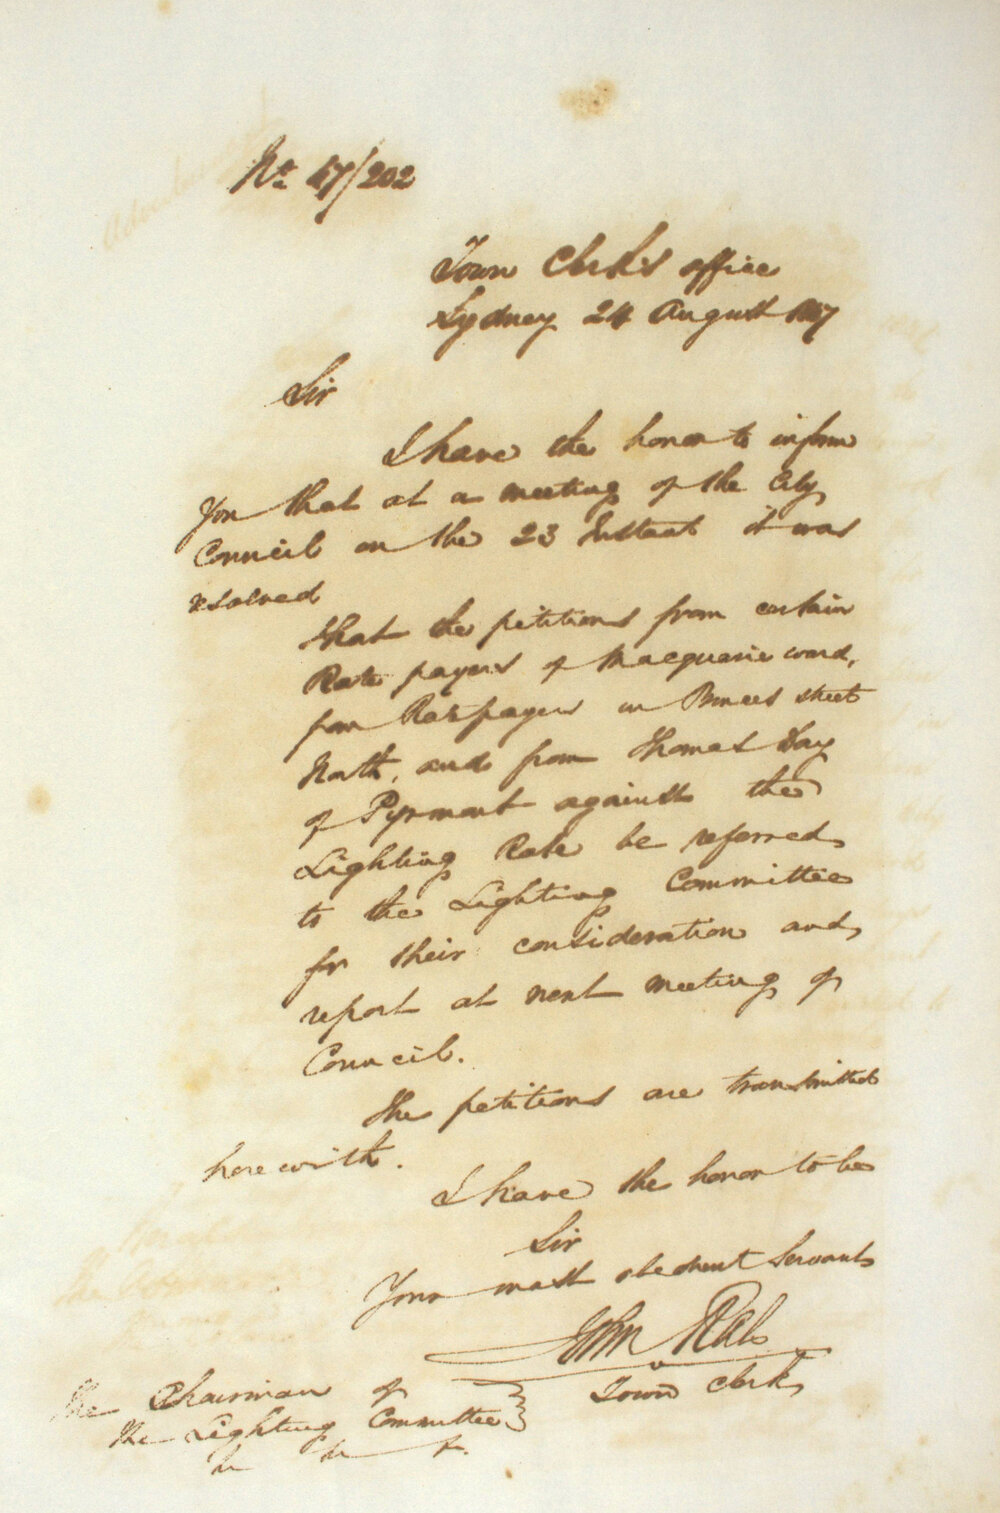 No. 47/202
Town Clerk's office
Sydney 24 August 1847
Sir
I have the honor to inform
you that at a meeting of the City
Council on the 23 Instant it was
resolved
that the petitions from certain
Rate payers of Macquarie ward,
from Ratepayers in Princes street
North, and from Thomas Day
of Pyrmont against the
Lighting Rate be referred
to the Lighting Committee
for their consideration and
report at next meeting of
Council.
The petitions are transmitted
herewith.
I have the honor to be
Sir
Your most obedient Servant
John
Town Clerk
The Chairman of
the Lighting Committee